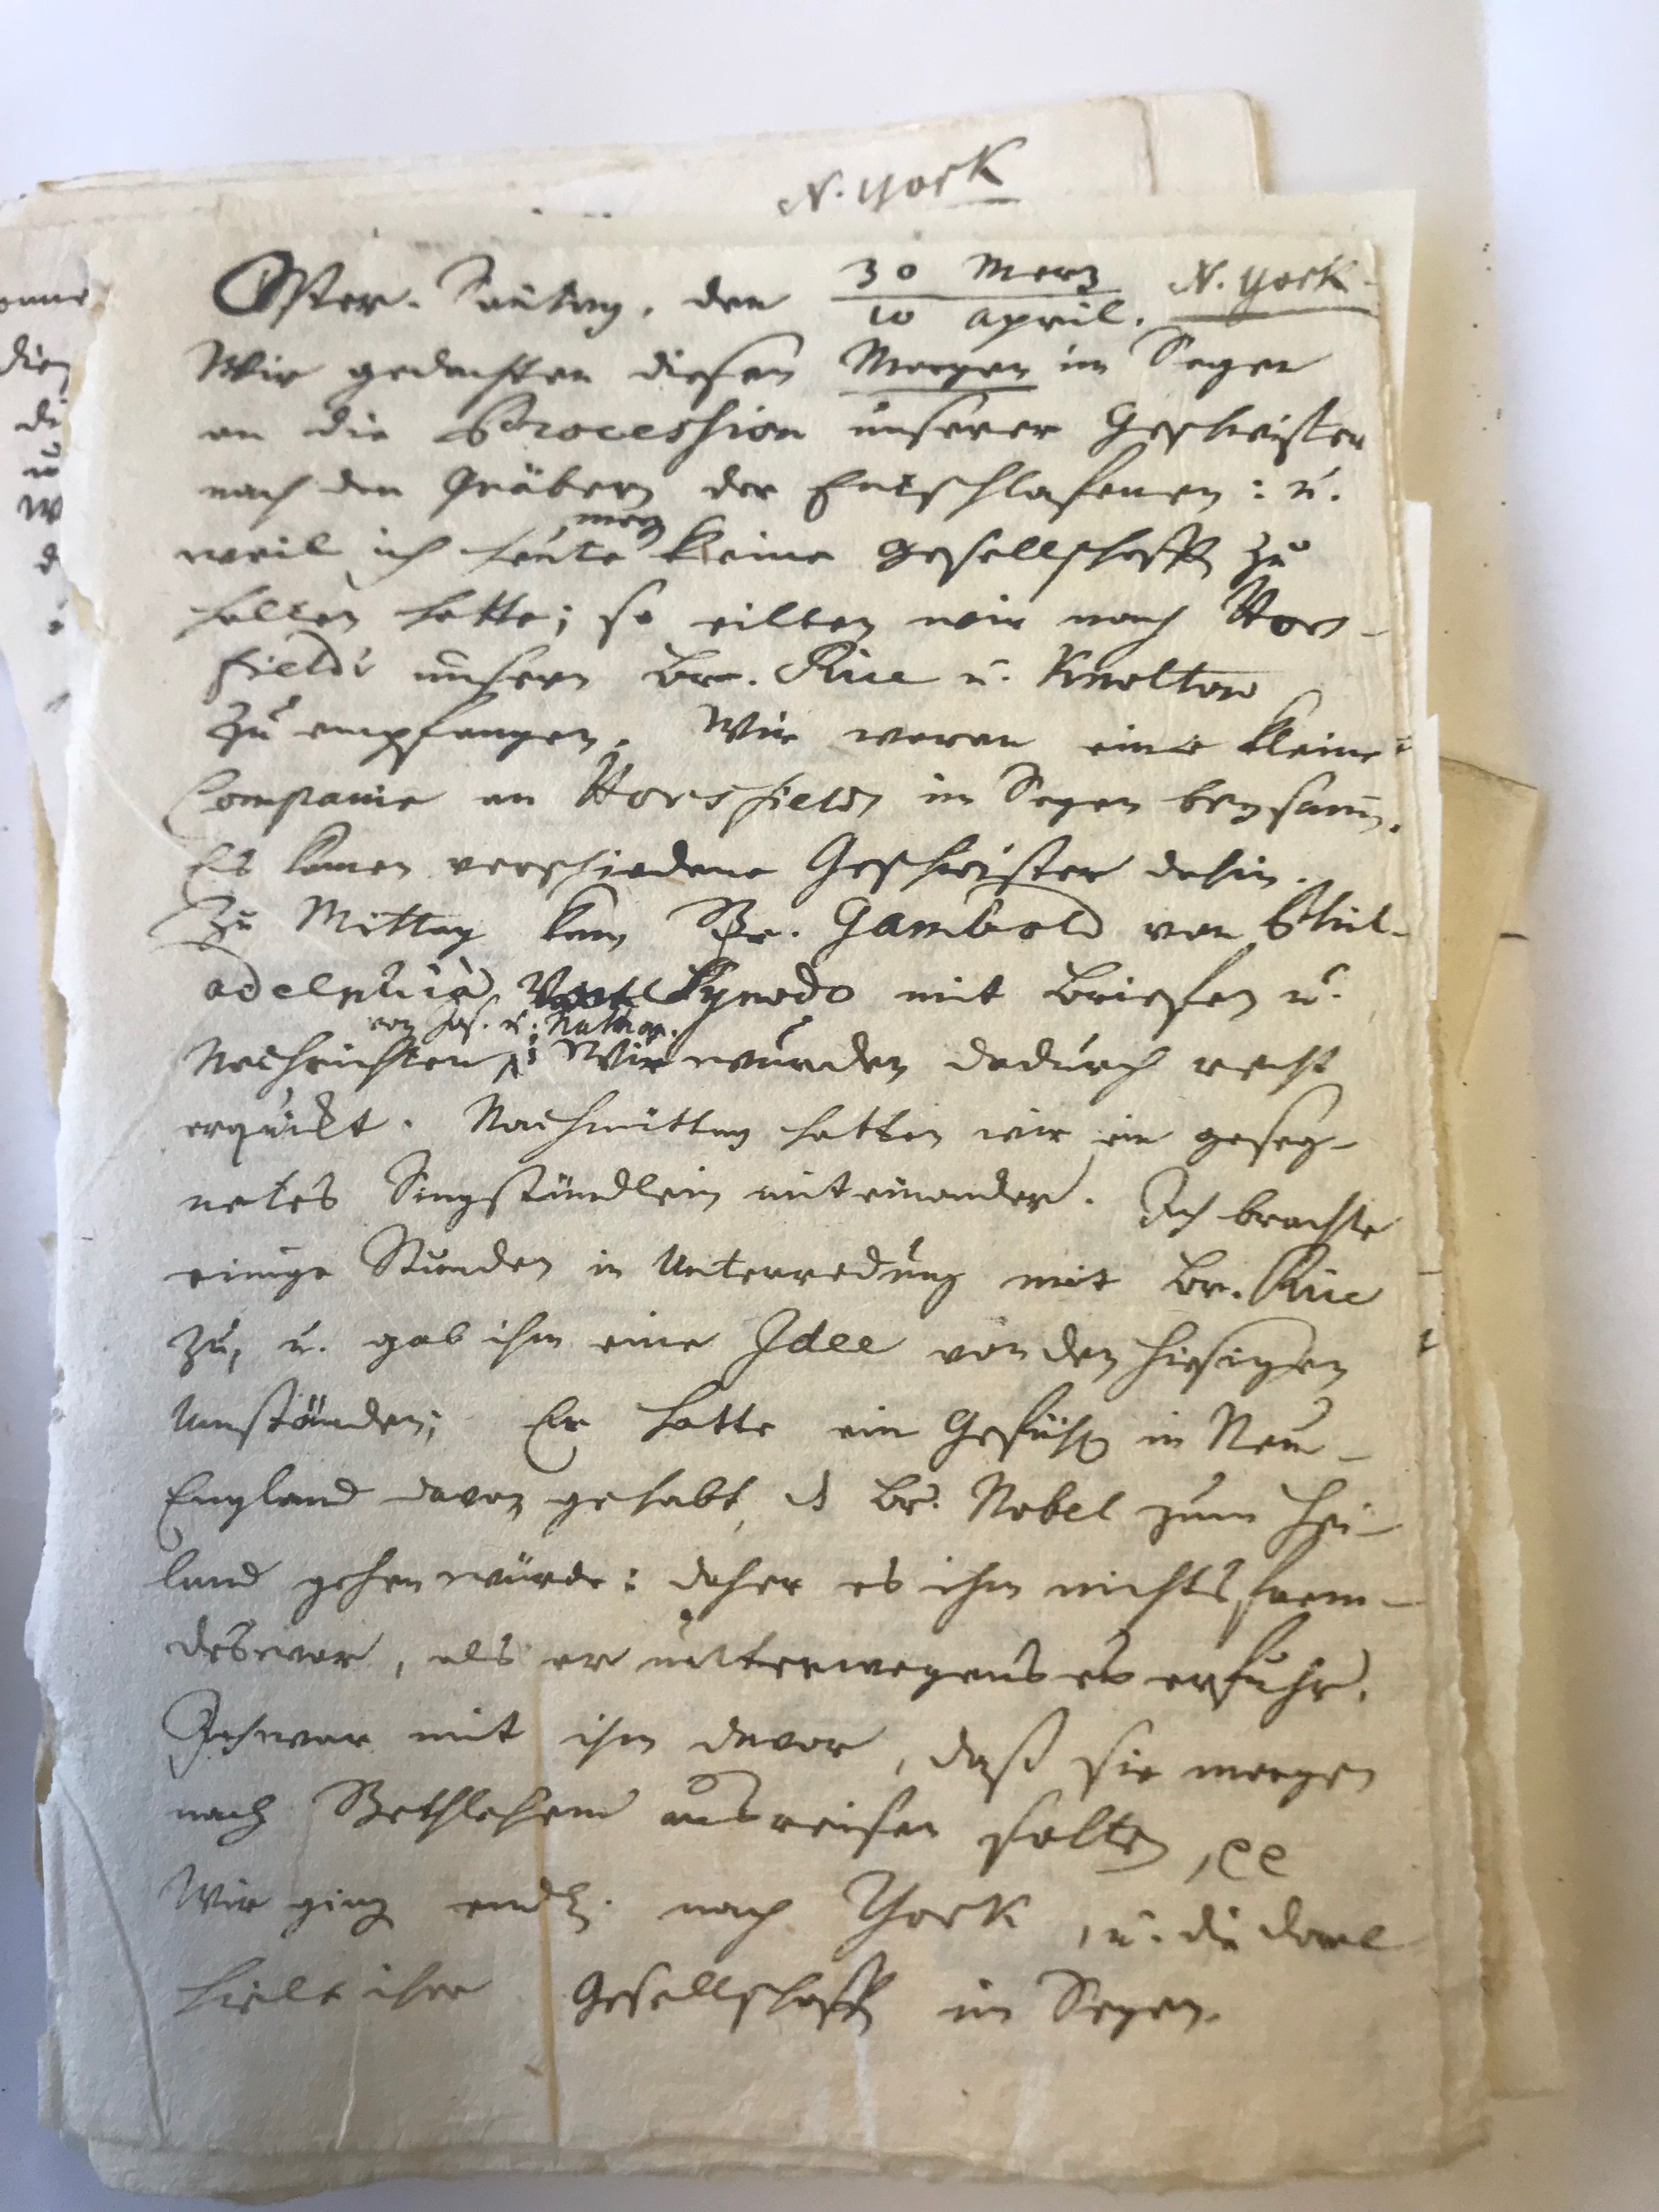 N. York
Oster-Sontag, den 30 Merz / 10 april. N. York
Wir gedachten diesen Morgen im Segen
an die Procession unserer Geschwister
nach den Gräbern der Entschlafenen: u.
weil ich heute morg keine Gesellschafft zu
halten hatte; so eilten wir nach Hors-
fields unsern Br. Rice u. Knolton
zu empfangen. Wir waren eine kleine
Companie an Horsfields im Segen beysam̄.
Es kamen verschiedene Geschwister dahin.
Zu Mittag kam Br. Gambold von Phil-
adelphia Synodo mit Briefen u.
Nachrichten von Jos. u. Nathan.; Wir wurden dadurch recht
erquikt. Nachmittag hatten wir ein geseg-
netes Singstündlein miteinander. Ich brachte
einige Stunden in Unterredung mit Br. Rice
zu, u. gab ihm eine Idee von den hiesigen
Umständen; Er hatte ein Gefühl in Neu-
England davon gehabt, Br. Nobel zum Hei-
land gehen würde: daher es ihm nichts frem-
des war, als er unterwegens es erfuhr.
Ich war mit ihm davor, daß sie morgen
nach Bethlehem ausreisen solten,
Wir ging endl. nach York, u. die
hielt ihre Gesellschafft im Segen.